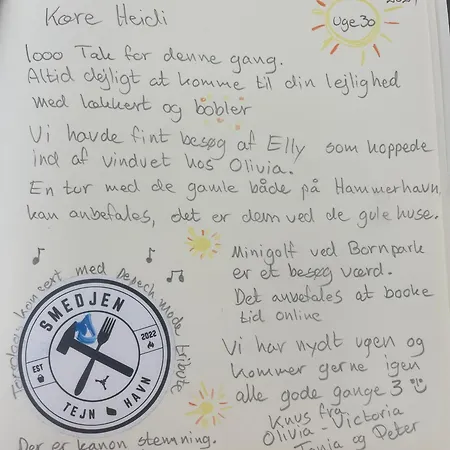 Kære Heidi
Uge 30
1000 Tak for denne gang.
Altid dejligt at komme til din lejlighed
med lækkert og bobler
Vi havde fint besøg af Elly som hoppede
ind af vinduet hos Olivia.
En tur med de gamle både på Hammerhavn
kan anbefales, det er dem ved de gule huse.
Minigolf ved Bornpark
er et besøg værd.
Det anbefales at booke
tid online
koncert med Depech mode tribute
SMEDJEN
EST 2022
TEJN HAVN
Vi har nydt ugen og
kommer gerne igen
alle gode gange 3
Knus fra
Olivia - Victoria
Tonja og Peter
Der er kanon stemning.